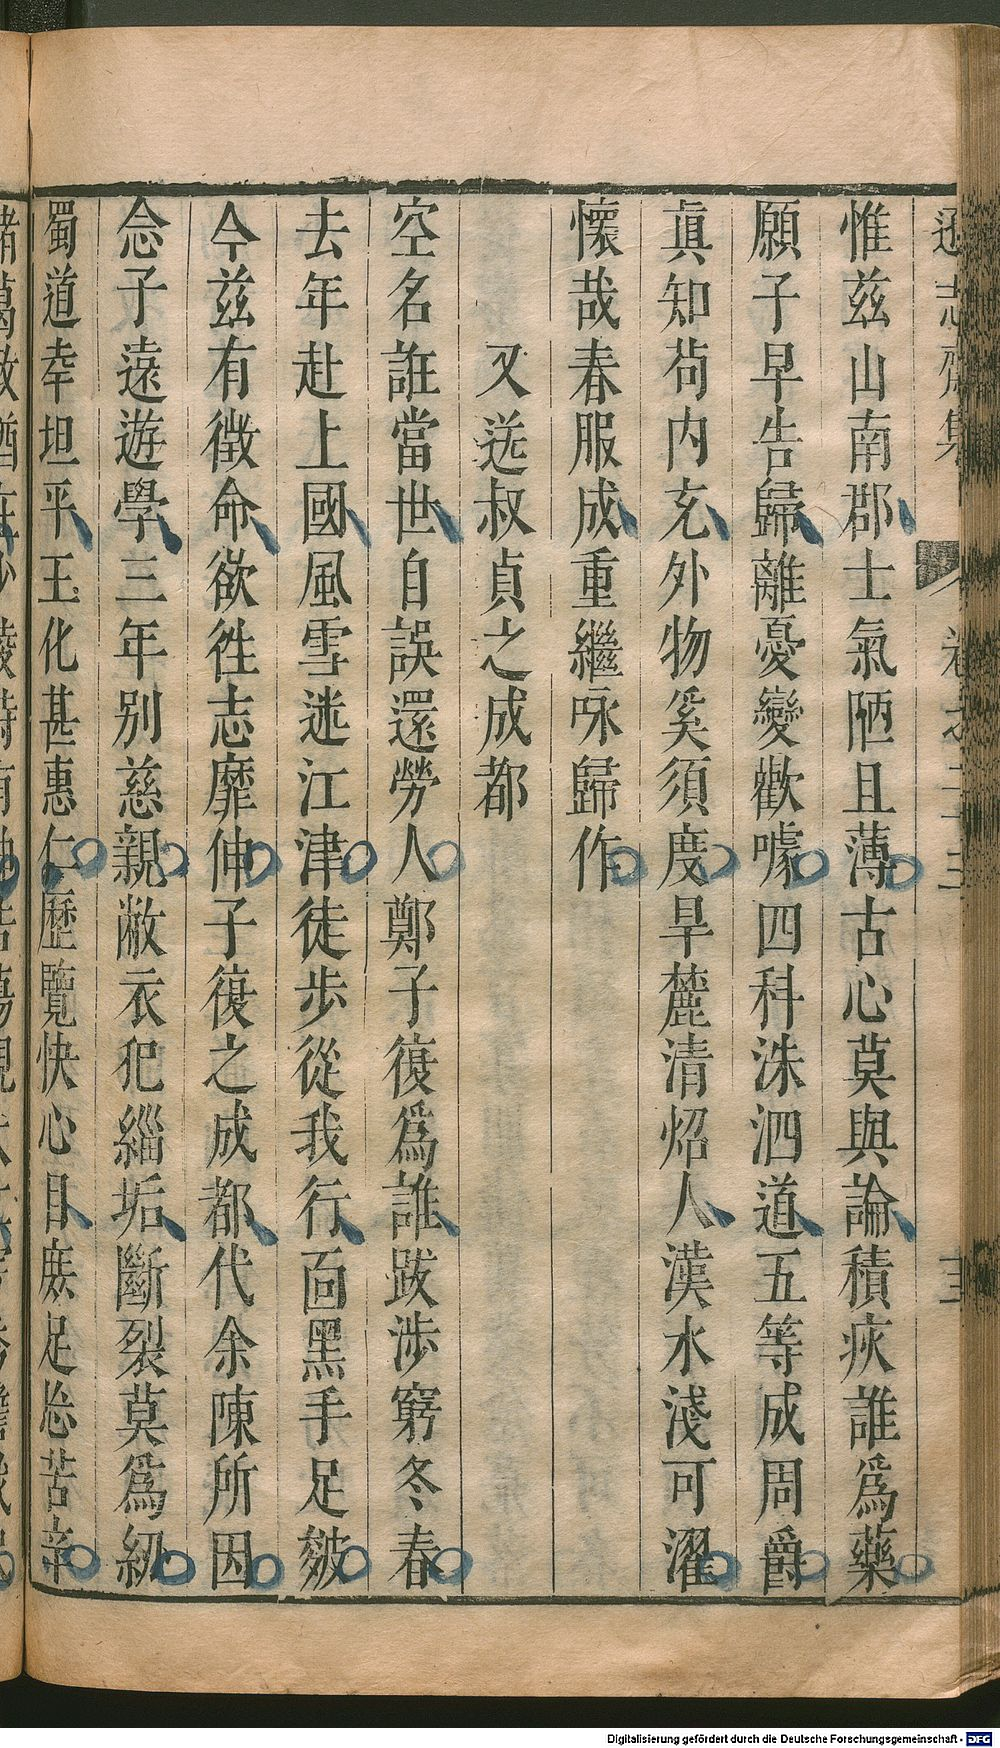 遜志齋集 卷之二十三 十三
惟茲山南郡士氣陋且薄古心莫與論積疢誰為藥
願子早告歸離憂變歡噱四科洙泗道五等成周爵
眞知茍内充外物奚須度旱麓清炤人漢水淺可濯
懷哉春服成重繼咏歸作
又送叔貞之成都
空名誑當世自誤還勞人鄭子復為誰跋涉窮冬春
去年赴上國風雪迷江津徒步從我行面黑手足皴
今茲有徵命欲徃志靡伸子復之成都代余陳所因
念子遠遊學三年別慈親敝衣犯緇垢斷裂莫為紉
蜀道幸坦平王化甚惠仁歷覽快心目庶足忘苦辛
Digitalisierung gefördert durch die Deutsche Forschungsgemeinschaft - DFG